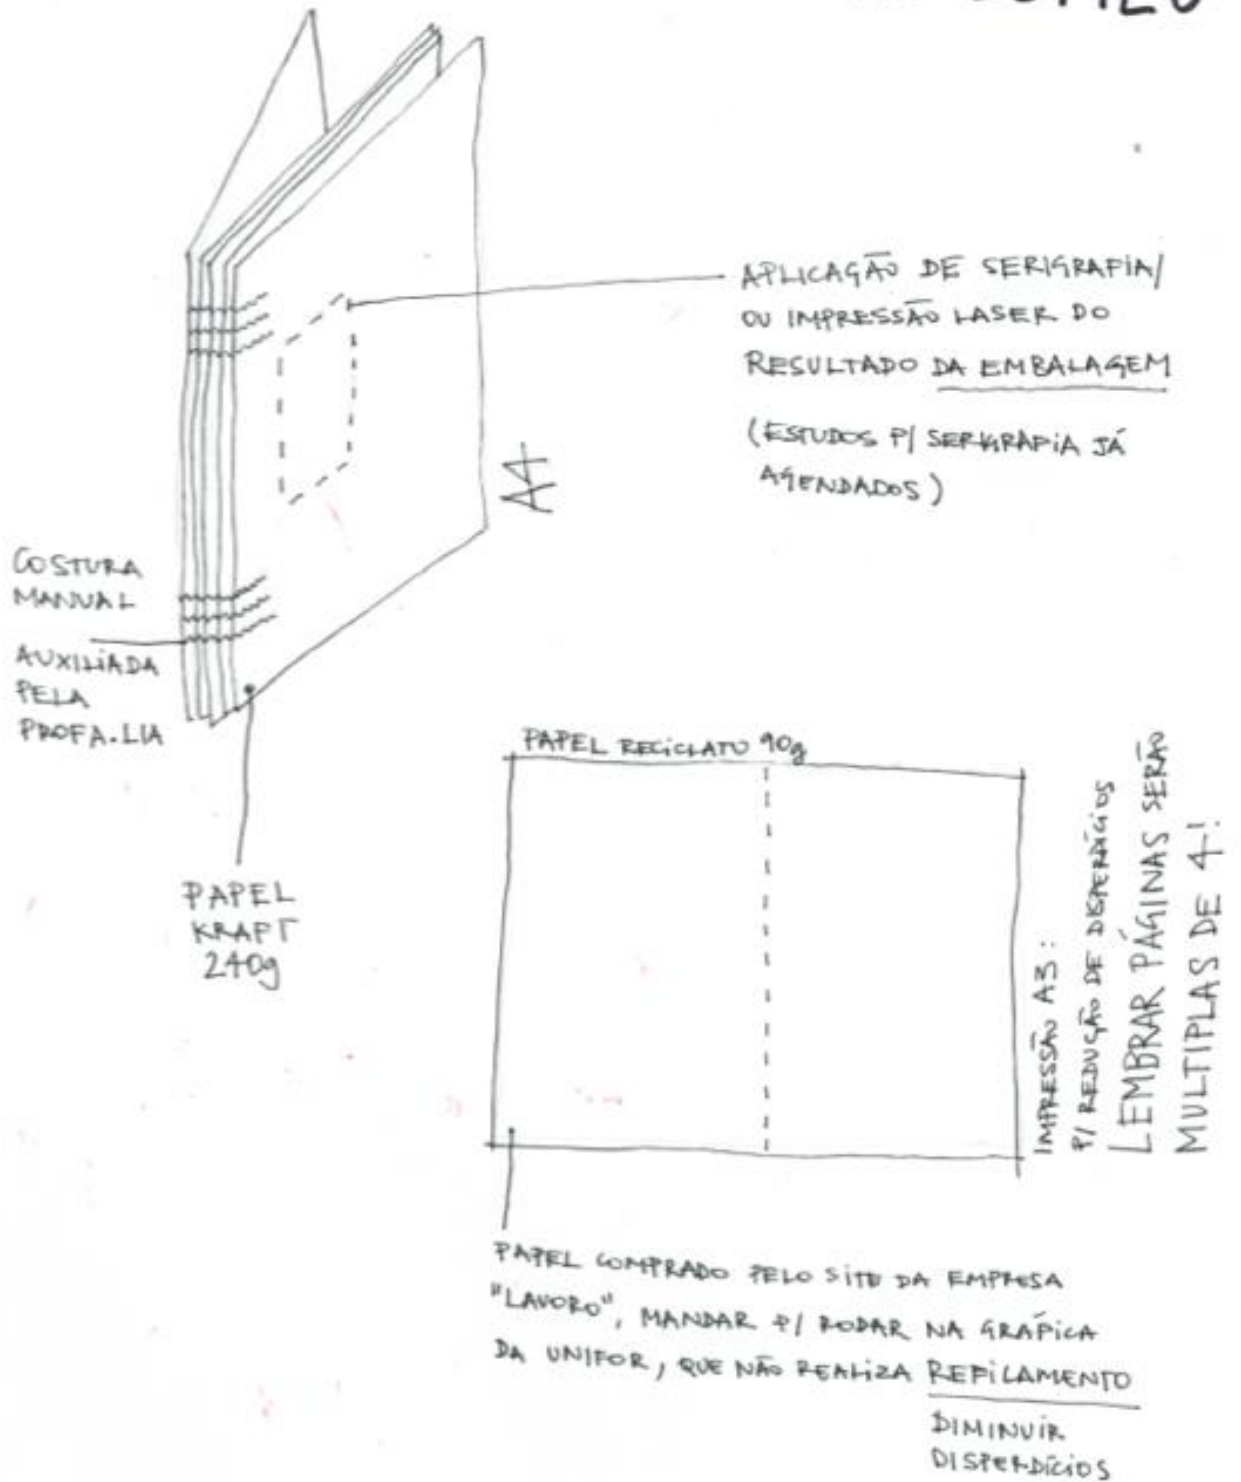 APLICAÇÃO DE SERIGRAFIA/
OU IMPRESSÃO LASER DO
RESULTADO DA EMBALAGEM
(ESTUDOS P/ SERIGRAFIA JÁ
AGENDADOS)
A4
COSTURA
MANUAL
AUXILIADA
PELA
PROFA. LIA
PAPEL
KRAFT
240g
PAPEL RECICLATO 90g
IMPRESSÃO A3:
P/ REDUÇÃO DE DISPERDÍCIOS
LEMBRAR PÁGINAS SERÃO
MULTIPLAS DE 4!
PAPEL COMPRADO PELO SITE DA EMPRESA
"LAVORO", MANDAR P/ RODAR NA GRÁFICA
DA UNIFOR, QUE NÃO REALIZA REFILAMENTO
DIMINUIR
DISPERDÍCIOS